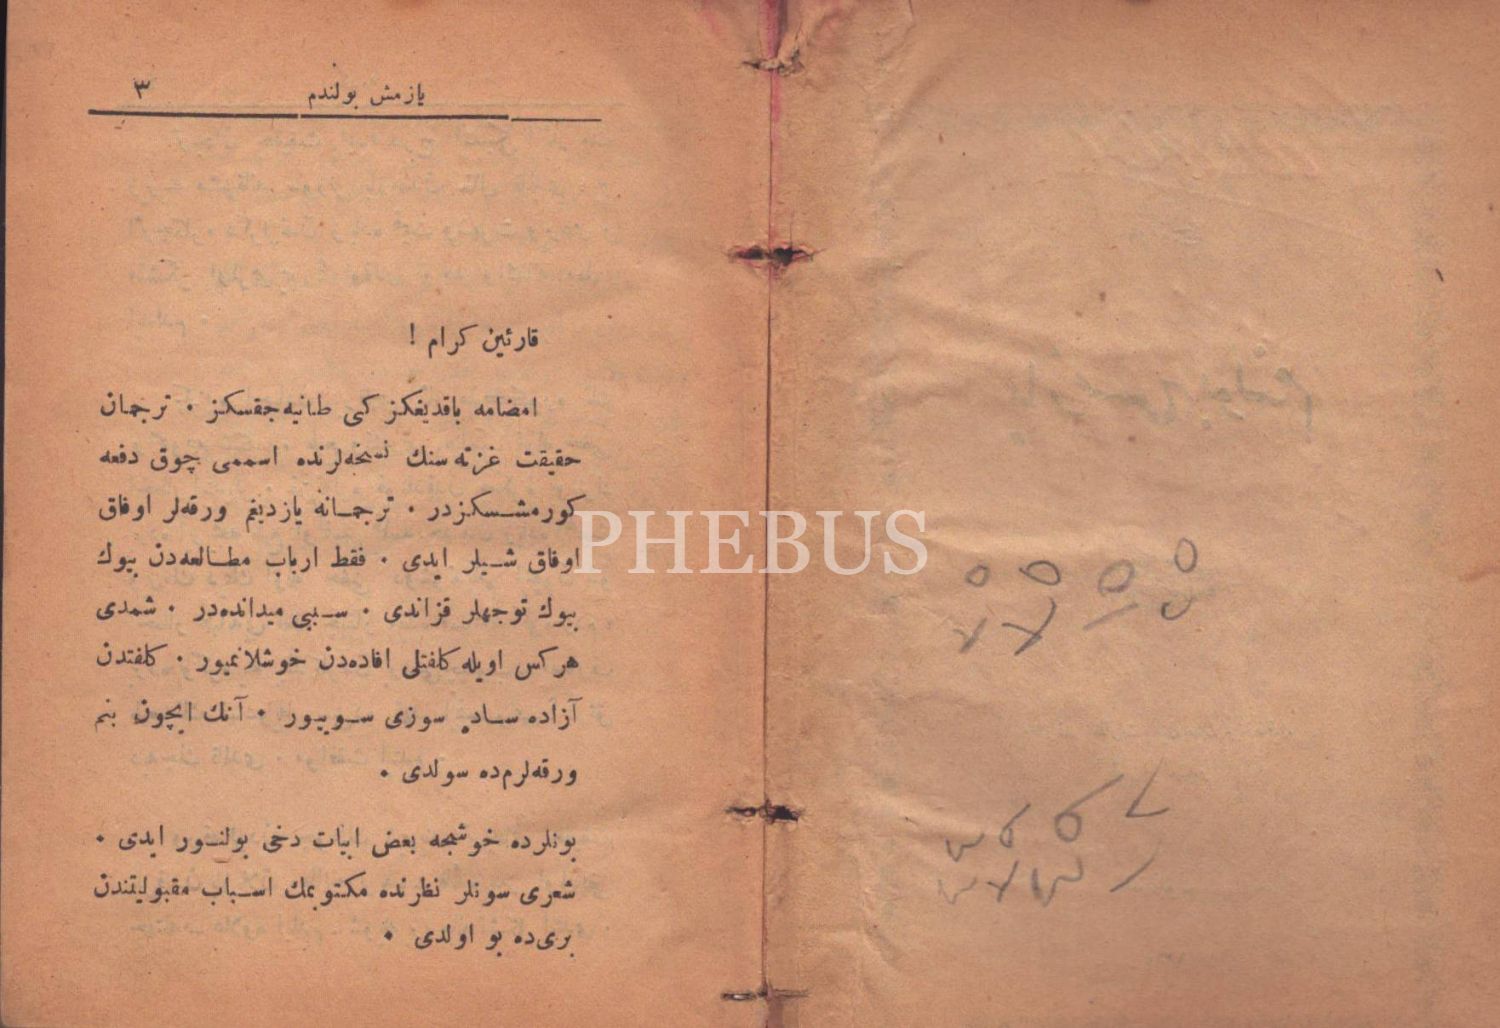 یازمش بولندم ٣
قارئین کرام !
امضامه باقدیغکز کبی طانیه‌جقسکز ٠ ترجمان
حقیقت غزته‌سنك نسخه‌لرنده اسممی چوق دفعه
کورمشسکزدر ٠ ترجمانه یازدیغم ورقه‌لر اوفاق
اوفاق شیلر ایدی ٠ فقط ارباب مطالعه‌دن بیوك
بیوك توجهلر قزاندی ٠ سببی میدانده‌در ٠ شمدی
هرکس اویله کلفتلی افاده‌دن خوشلانمیور ٠ کلفتدن
آزاده ساده سوزی سوییور ٠ آنك ایچون بنم
ورقه‌لرم‌ده سولدی ٠
بونلرده خوشجه بعض ابیات دخی بولنور ایدی ٠
شعری سونلر نظرنده مکتوبمك اسباب مقبولیتندن
بری‌ده بو اولدی ٠
PHEBUS